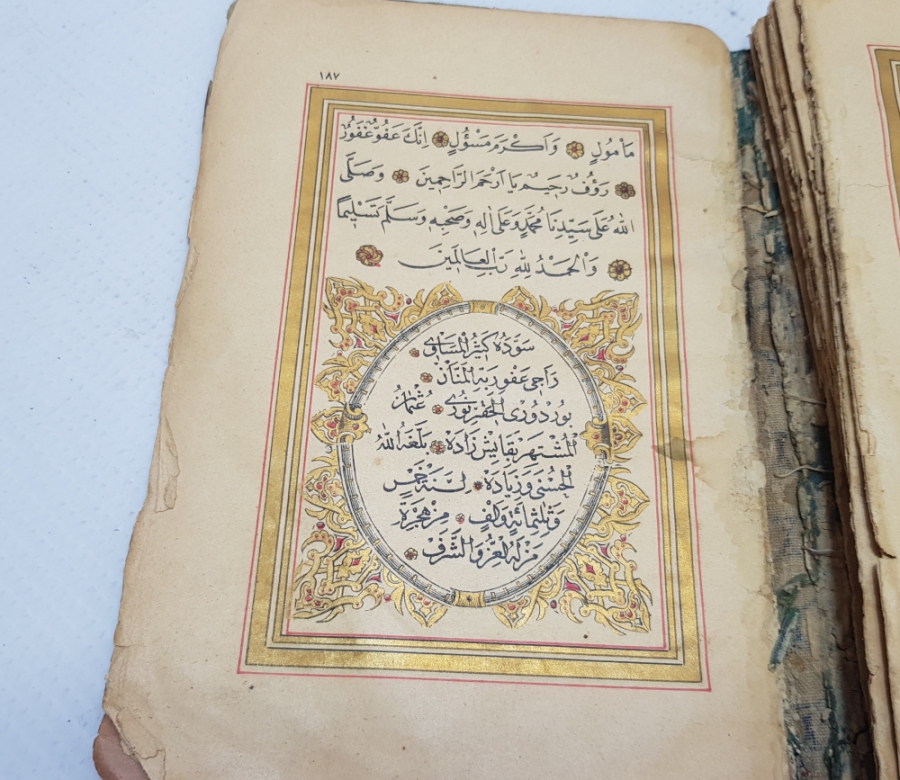 ١٨٧
مَأْمُولٍ وَاَكْرَمَ مَسْؤُلٍ اِنَّكَ عَفُوٌّ غَفُورٌ
رَؤُفٌ رَحِيمٌ يَا اَرْحَمَ الرَّاحِمِينَ وَصَلَّى
اللهُ عَلَى سَيِّدِنَا مُحَمَّدٍ وَعَلَى اٰلِهِ وَصَحْبِهِ وَسَلَّمَ تَسْلِيمًا
وَالْحَمْدُ لِلّٰهِ رَبِّ الْعَالَمِينَ
سَوَّدَهُ كَثِيرُ الْمَسَاوِى
رَاجِى عَفْوِ رَبِّهِ الْمَنَّانْ
بُورْدُورِى الْحَقِيرُ نُورِى عُثْمَانْ
الْمُشْتَهِرْ بِقَايِشْ زَادَهْ بَلَّغَهُ اللهُ
الْحُسْنَى وَزِيَادَهْ لِسَنَةِ خَمْسٍ
وَثَلٰثِمِائَةٍ وَاَلْفٍ مِنْ هِجْرَةِ
مَنْ لَهُ الْعِزُّ وَالشَّرَفْ